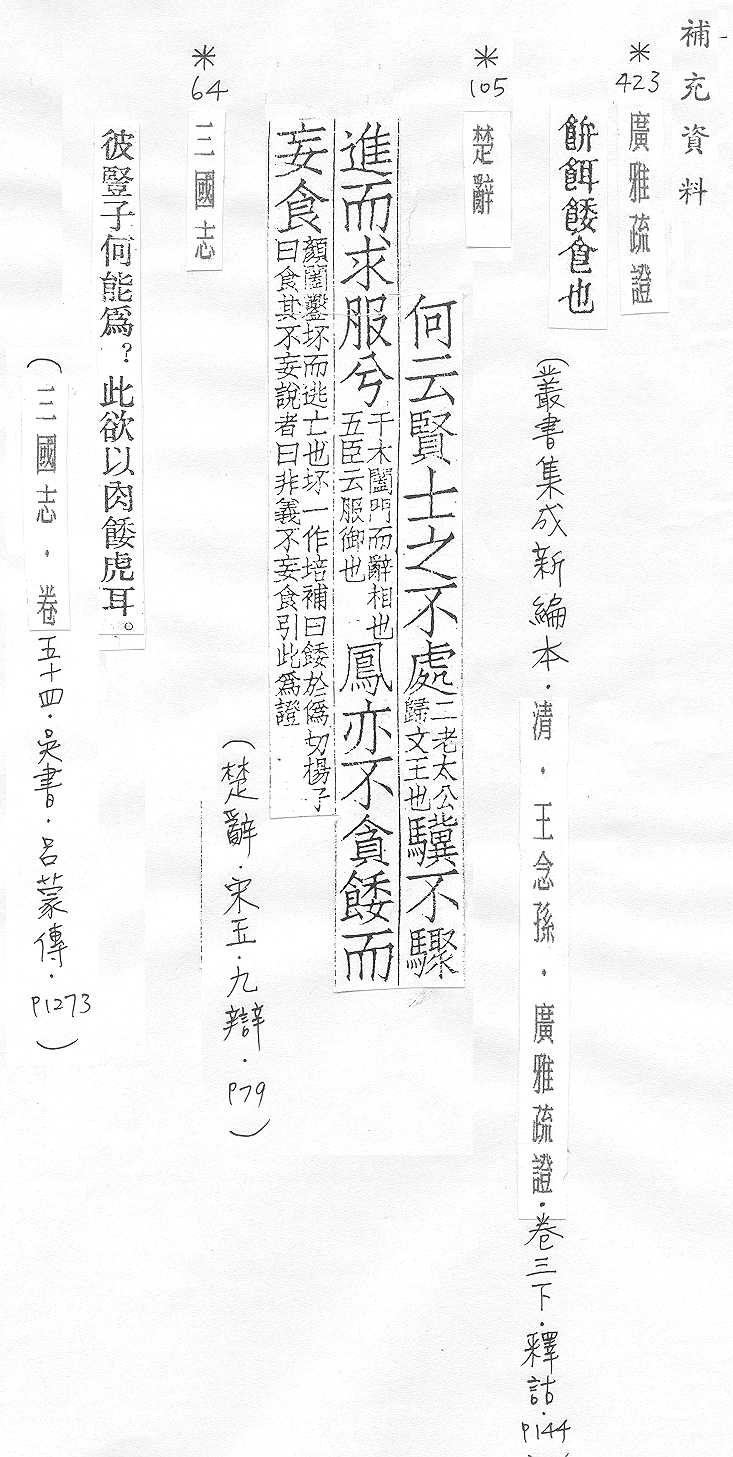 補充資料
＊423 廣雅疏證
餠餌餧食也
（叢書集成新編本．清．王念孫．廣雅疏證．卷三下．釋詁．P144
＊105 楚辭
何云賢士之不處二老太公歸文王也驥不驟
進而求服兮干木闔門而辭相也五臣云服御也鳳亦不貪餧而
妄食顏闔鑿坏而逃亡也坏一作培補曰餧於僞切楊子曰食其不妄說者曰非義不妄食引此爲證
（楚辭．宋玉．九辯．P79）
＊64 三國志
彼豎子何能爲？此欲以肉餧虎耳。
（三國志．卷五十四．吳書．呂蒙傳．P1273）